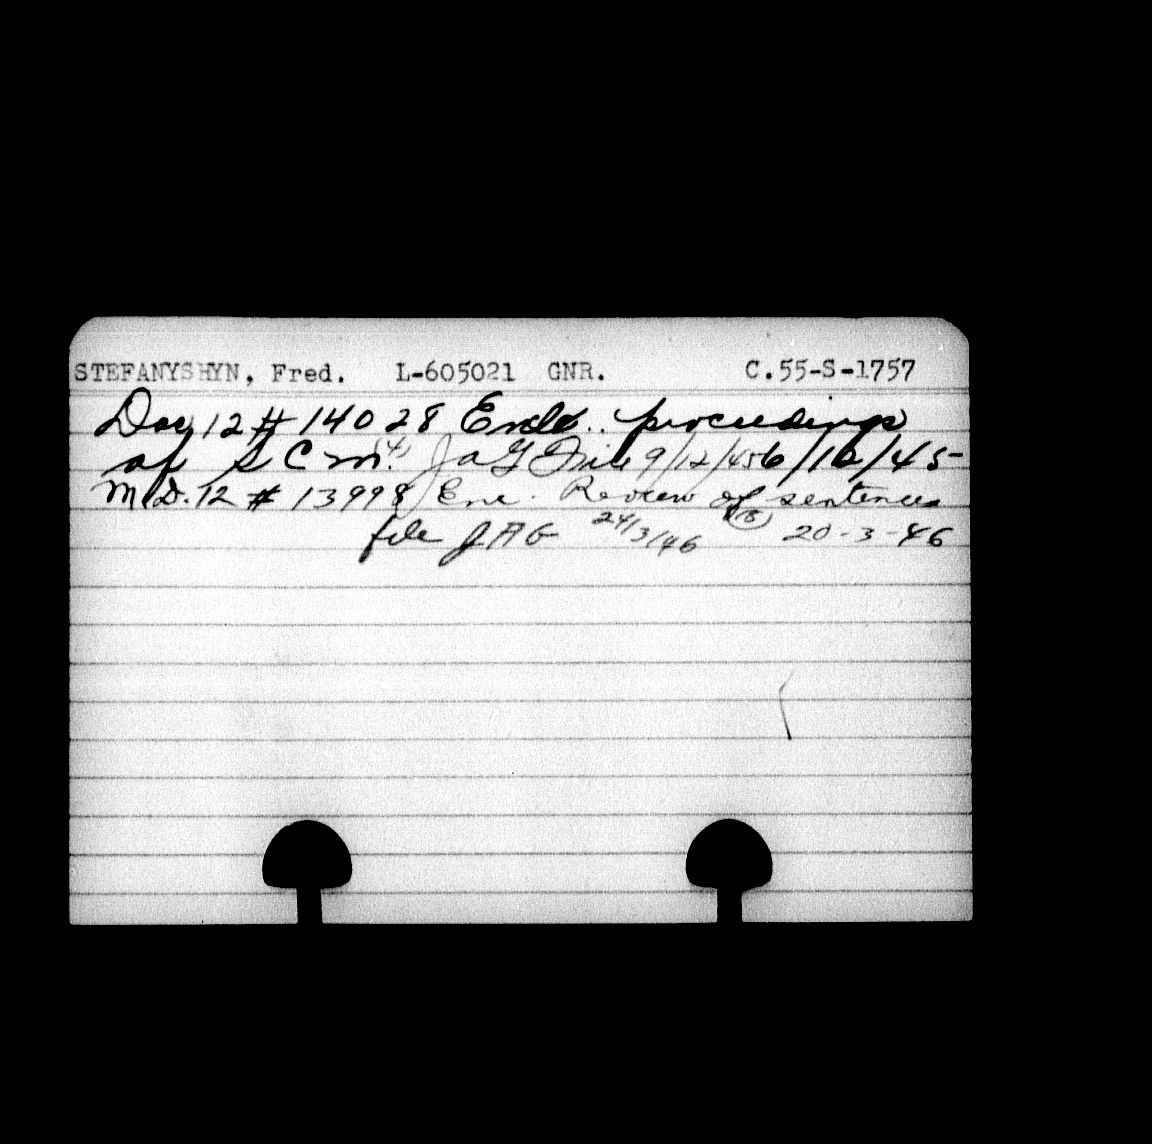 STEFANYSHYN, Fred. L-605021 GNR. C.55-S-1757
Doc 12 # 14028 Encl. proceedings
of S C M. (4) JaG File 9/12/45 6/12/45
M.D. 12 # 13998 Enc. Review of sentences
file JAG 24/3/46 (B) 20-3-46